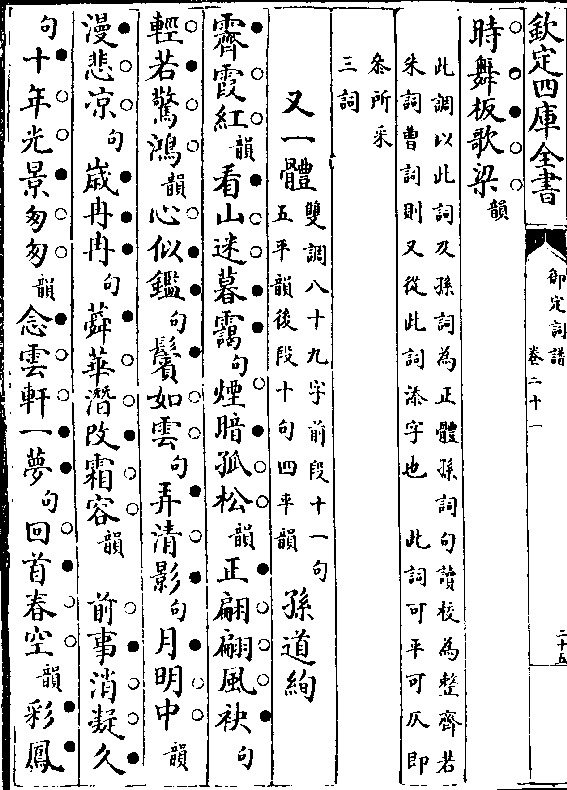 欽定四庫全書
御定詞譜
卷二十一
二十五
時舞板歌梁韻
此調以此詞及孫詞為正體孫詞句讀校為整齊若
朱詞曹詞則又從此詞添字也　此詞可平可仄即
叅所采
三詞
又一體雙調八十九字前段十一句
五平韻後段十句四平韻　孫道絢
霽霞紅韻看山迷暮靄句煙暗孤松韻正翩翩風袂句
輕若驚鴻韻心似鑑句鬢如雲句弄清影句月明中韻
漫悲凉句嵗冉冉句蕣華潛改霜容韻　前事消凝久
句十年光景匆匆韻念雲軒一夢句回首春空韻彩鳳